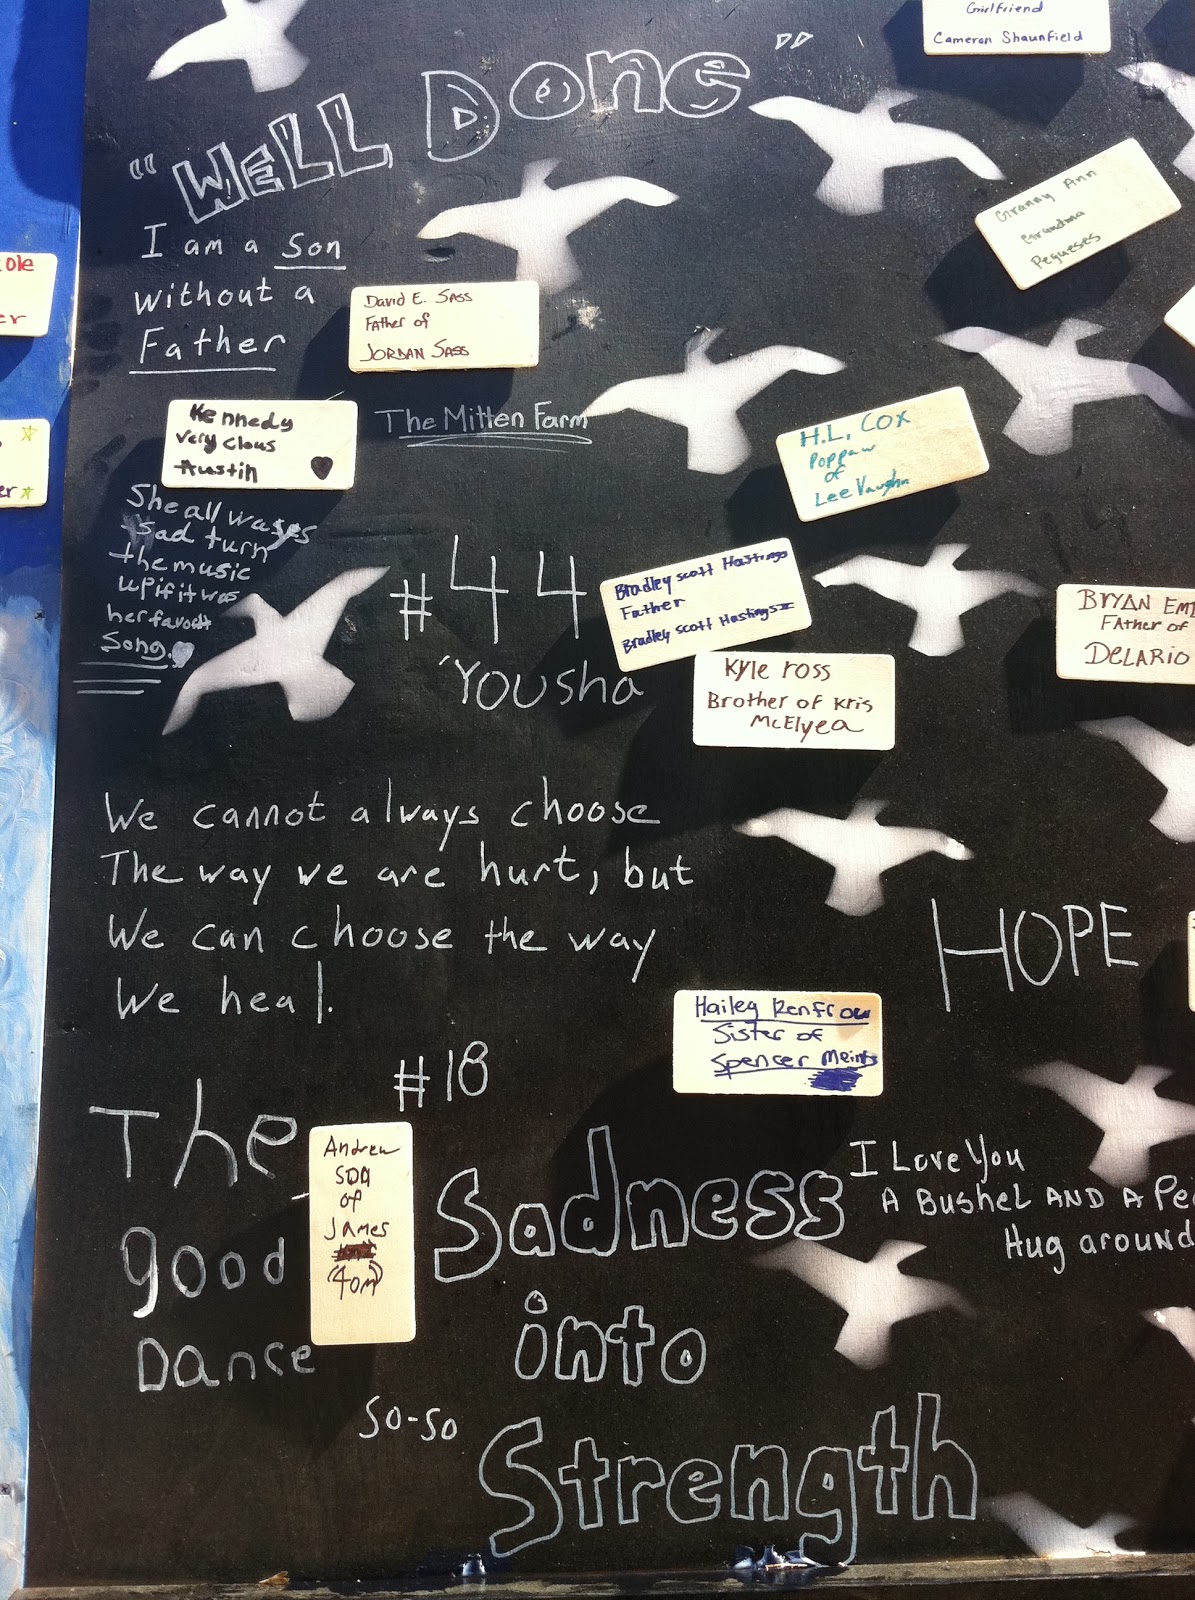 Girlfriend
Cameron Shaunfield
"WELL DONE"
Granny Ann
Grandma
Pegueses
I am a Son
without a
Father
ole
er
David E. Sass
Father of
JORDAN SASS
Kennedy
very clous
Austin
The Mitten Farm
H.L. COX
Poppaw
of
Lee Vaughn
er
She all wases
sad turn
the music
up if it was
her favorit
Song.
#44
'YOUSha
Bradley scott Hastings
Father
Bradley scott Hastings II
BRYAN EM
FAther of
DELARIO
Kyle ross
Brother of Kris
McElyea
We cannot always choose
The way we are hurt, but
We can choose the way
We heal.
HOPE
Hailey Renfrow
Sister of
Spencer Meints
#18
The
good
Dance
Andrew
son
of
James
(Tom)
Sadness
into
Strength
I Love You
A Bushel AND A Pe
Hug around
SO-SO